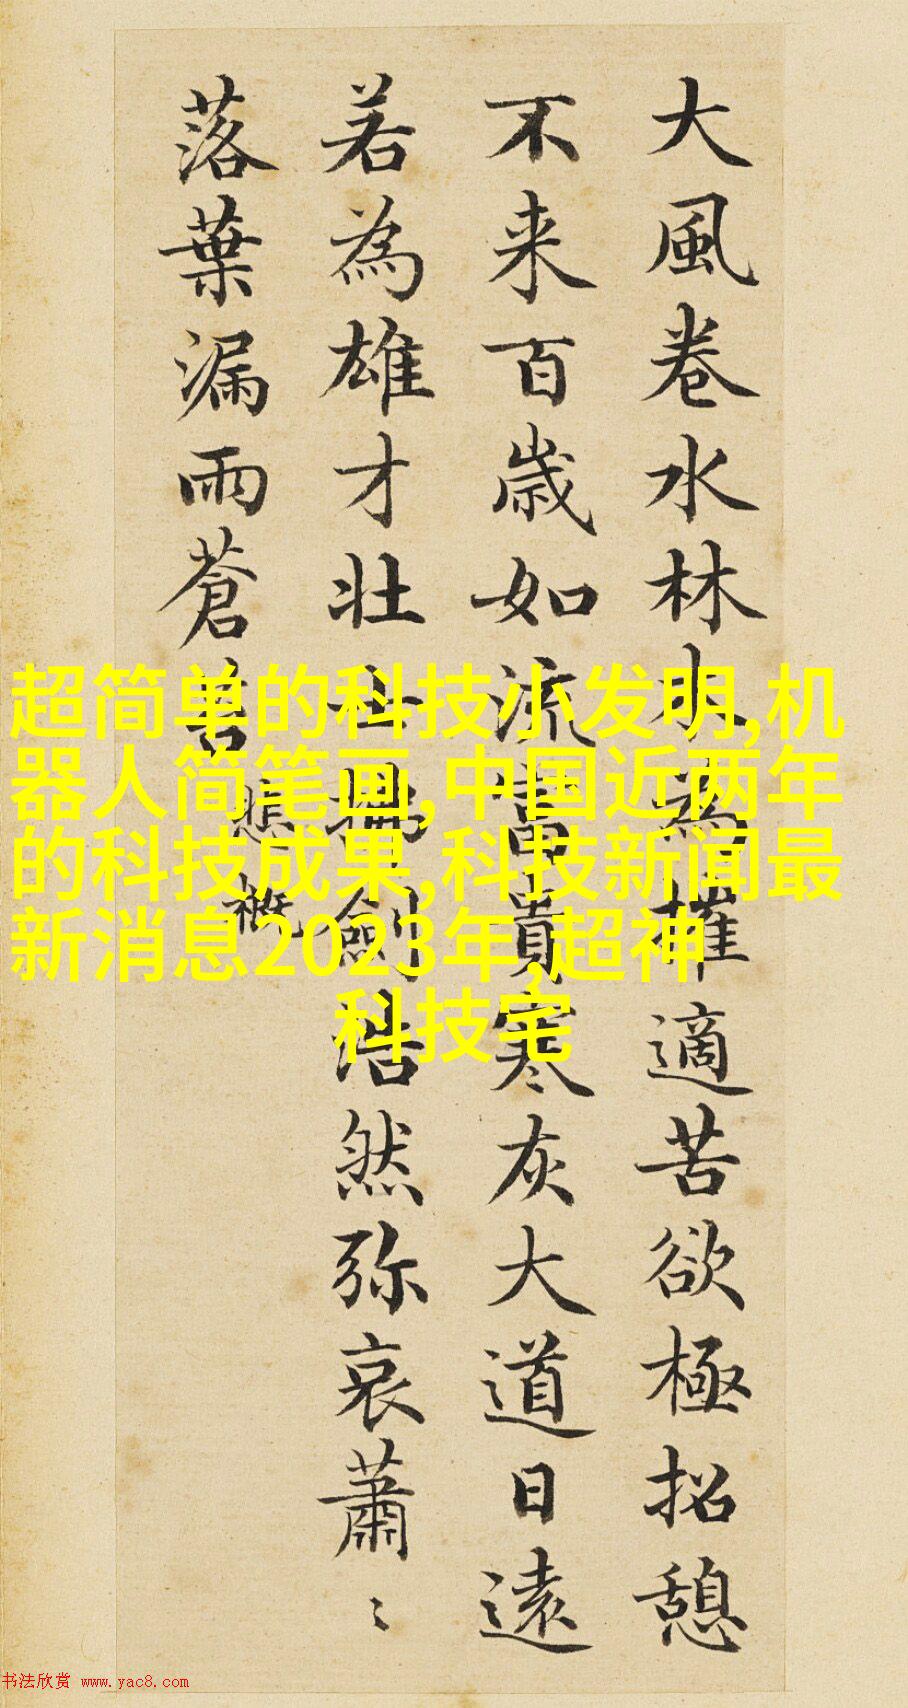 大風卷水林木為摧適苦欲極招憩
不来百歳如流富貴寒灰大道日遠
若為雄才壮士拂劍浩然弥哀蕭〻
落葉漏雨蒼苔
悲概
超简单的科技小发明,机
器人简笔画,中国近两年
的科技成果,科技新闻最
新消息2023年,超神
科技宅
书法欣赏 www.yac8.com